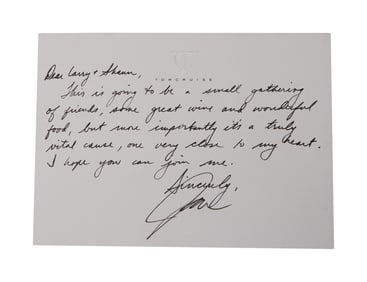 TOM CRUISE
Dear Larry & Shawn,
This is going to be a small gathering
of friends, some great wine and wonderful
food, but more importantly it's a truly
vital cause, one very close to my heart.
I hope you can join me.
Sincerely,